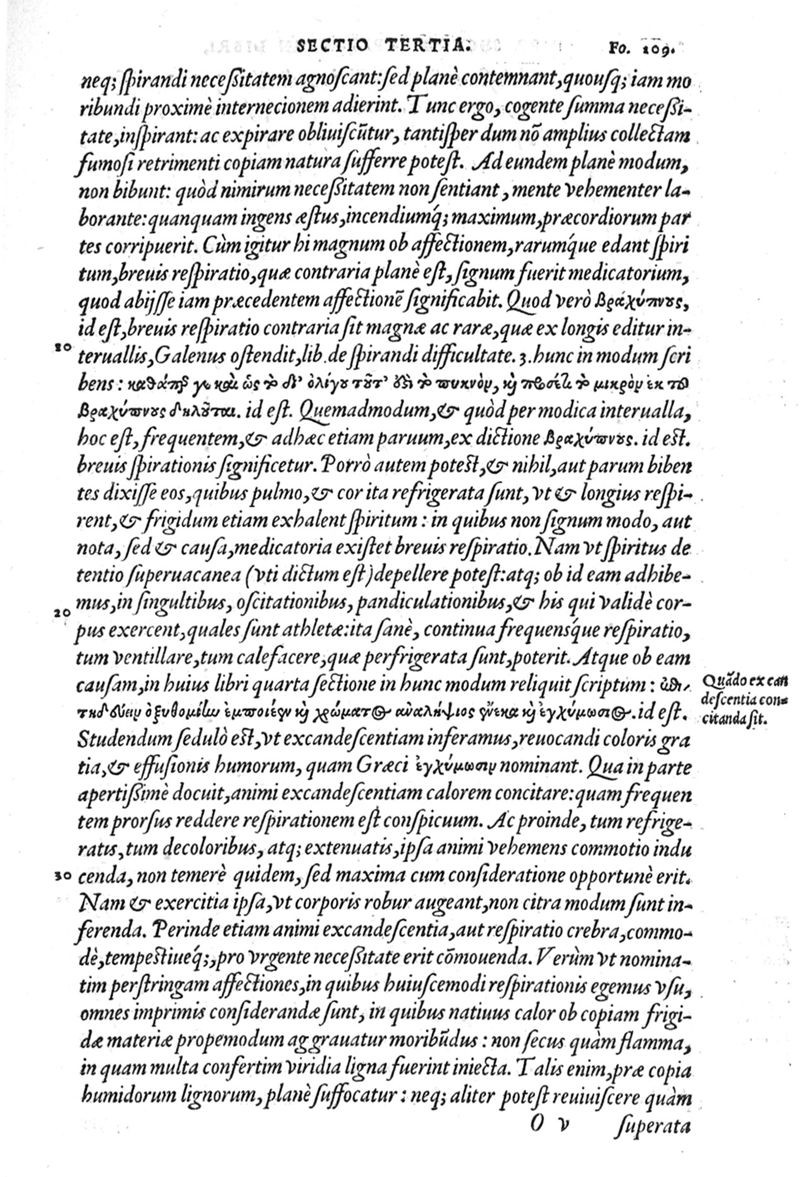 SECTIO TERTIA. Fo. 109.
neq; ſpirandi neceßitatem agnoſcant: ſed planè contemnant, quouſq; iam mo
ribundi proximè internecionem adierint. Tunc ergo, cogente ſumma neceßi-
tate, inſpirant: ac expirare obliuiſcūtur, tantiſper dum nō amplius collectam
fumoſi retrimenti copiam natura ſufferre poteſt. Ad eundem planè modum,
non bibunt: quòd nimirum neceßitatem non ſentiant, mente vehementer la-
borante: quanquam ingens æſtus, incendiumq́; maximum, præcordiorum par
tes corripuerit. Cùm igitur hi magnum ob affectionem, rarumq́ue edant ſpiri
tum, breuis reſpiratio, quæ contraria planè eſt, ſignum fuerit medicatorium,
quod abijſſe iam præcedentem affectionē ſignificabit. Quod verò βραχύπνους,
id eſt, breuis reſpiratio contraria ſit magnæ ac raræ, quæ ex longis editur in-
10 teruallis, Galenus oſtendit, lib. de ſpirandi difficultate. 3. hunc in modum ſcri
bens: καθάπερ γὰρ καὶ ὡς τὸ δι' ὀλίγου τοῦτ' ἔστι τὸ πυκνὸν, καὶ προσέτι τὸ μικρὸν ἐκ τοῦ
βραχύπνους δηλοῦται. id eſt. Quemadmodum, & quòd per modica interualla,
hoc eſt, frequentem, & adhæc etiam paruum, ex dictione βραχύπνους. id eſt.
breuis ſpirationis ſignificetur. Porrò autem poteſt, & nihil, aut parum biben
tes dixiſſe eos, quibus pulmo, & cor ita refrigerata ſunt, vt & longius reſpi-
rent, & frigidum etiam exhalent ſpiritum: in quibus non ſignum modo, aut
nota, ſed & cauſa, medicatoria exiſtet breuis reſpiratio. Nam vt ſpiritus de
tentio ſuperuacanea (vti dictum eſt) depellere poteſt: atq; ob id eam adhibe-
20 mus, in ſingultibus, oſcitationibus, pandiculationibus, & his qui validè cor-
pus exercent, quales ſunt athletæ: ita ſanè, continua frequensq́ue reſpiratio,
tum ventillare, tum calefacere, quæ perfrigerata ſunt, poterit. Atque ob eam
cauſam, in huius libri quarta ſectione in hunc modum reliquit ſcriptum: ἐπι-
τηδεύειν ὀξυθυμίην ἐμποιέειν καὶ χρώματος ἀναλήψιος ἕνεκα καὶ ἐγχύμωσιος. id eſt.
Quādo ex can
deſcentia con-
citanda ſit.
Studendum ſedulò eſt, vt excandeſcentiam inferamus, reuocandi coloris gra
tia, & effuſionis humorum, quam Græci ἐγχύμωσιν nominant. Qua in parte
apertißimè docuit, animi excandeſcentiam calorem concitare: quam frequen
tem prorſus reddere reſpirationem eſt conſpicuum. Ac proinde, tum refrige-
ratis, tum decoloribus, atq; extenuatis, ipſa animi vehemens commotio indu
30 cenda, non temerè quidem, ſed maxima cum conſideratione opportunè erit.
Nam & exercitia ipſa, vt corporis robur augeant, non citra modum ſunt in-
ferenda. Perinde etiam animi excandeſcentia, aut reſpiratio crebra, commo-
dè, tempeſtiueq́;, pro vrgente neceßitate erit cōmouenda. Verùm vt nomina-
tim perſtringam affectiones, in quibus huiuſcemodi reſpirationis egemus vſu,
omnes imprimis conſiderandæ ſunt, in quibus natiuus calor ob copiam frigi-
dæ materiæ propemodum aggrauatur moribūdus: non ſecus quàm flamma,
in quam multa confertim viridia ligna fuerint iniecta. Talis enim, præ copia
humidorum lignorum, planè ſuffocatur: neq; aliter poteſt reuiuiſcere quàm
O v ſuperata